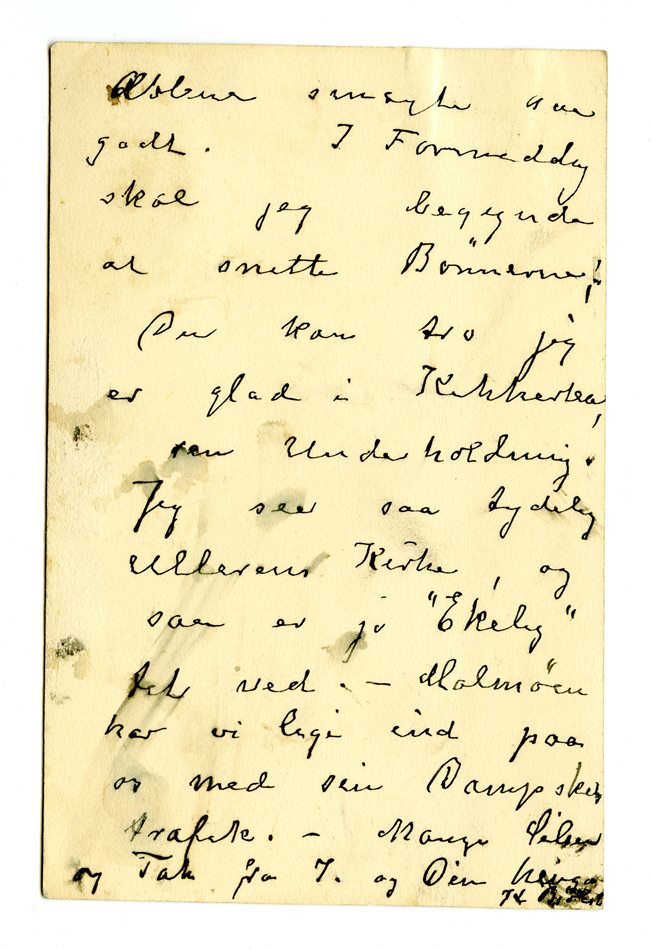 smagte saa
godt. I Formiddag
skal jeg begynde
at snitte Bönnerne!
Du kan tro jeg
er glad i Kikkerten,
en Underholdning.
Jeg seer saa tydelig
Ullerens Kirke, og
saa er jo "Ekely"
tæt ved. — Malmöen
har vi lige ind paa
os med sin Dampskibs
trafik. — Mange Hilsen
og Tak fra J. og Din